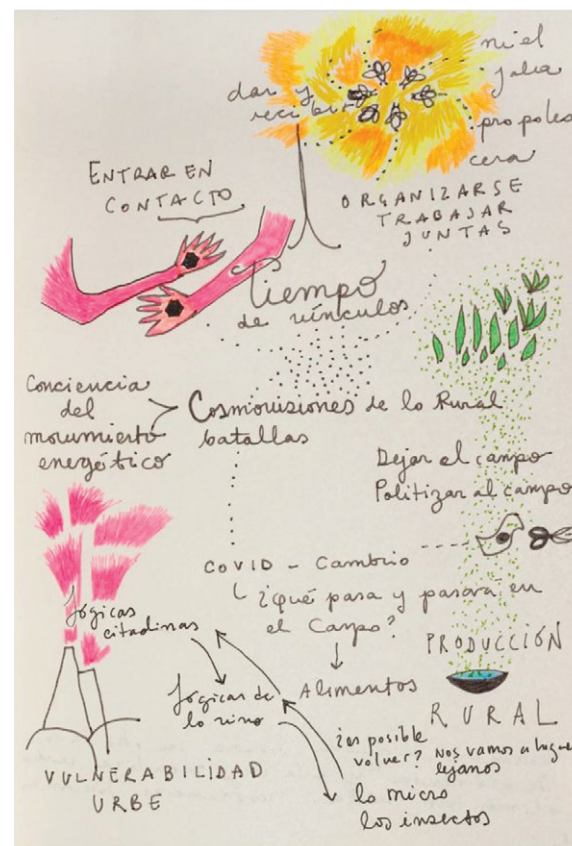 dar y
recibir
miel
jalea
propoleo
cera
ORGANIZARSE
TRABAJAR
JUNTAS
ENTRAR EN
CONTACTO
Tiempo
de vínculos
Conciencia
del
movimiento
energético
Cosmovisiones de lo Rural
batallas
Dejar el campo
Politizar al campo
COVID - Cambio
¿qué pasa y pasará en
el Campo?
PRODUCCIÓN
RURAL
Alimentos
lógicas
citadinas
lógicas de
lo vivo
¿es posible
volver?
Nos vamos a
lejanos
lo micro
los insectos
VULNERABILIDAD
URBE